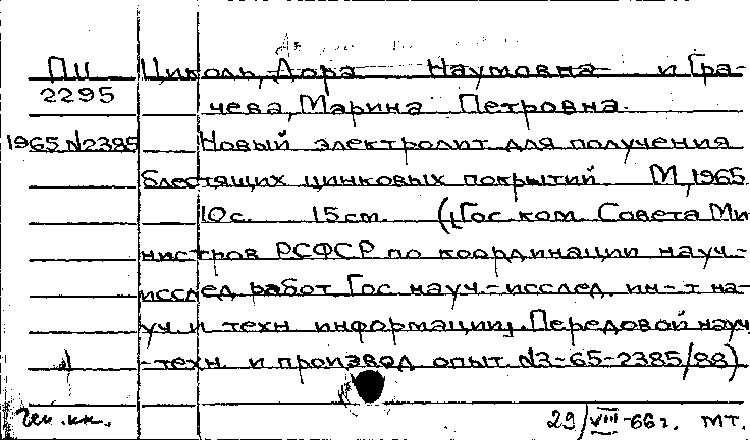 ПЦ Циколь, Дора Наумовна и Гра-
2295 чева, Марина Петровна.
1965 №2385 Новый электролит для получения
блестящих цинковых покрытий М, 1965
10с. 15см. (Гос ком. Совета Ми
нистров РСФСР по координации науч.-
исслед работ Гос науч.-исслед. ин-т на-
уч и техн информации. Передовой науч
-техн. и произвед опыт. №3-65-2385/88)
Ген. кн. 29/VIII-66г. МТ.